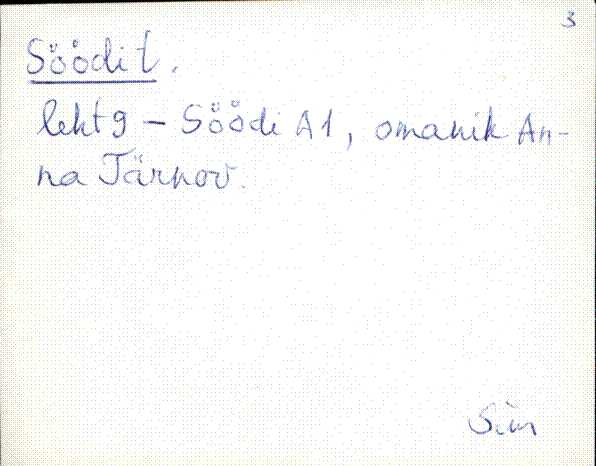 3
Söödi t.
lekt 9 – Söödi A1, omanik An-
na Tärnov.
Sim